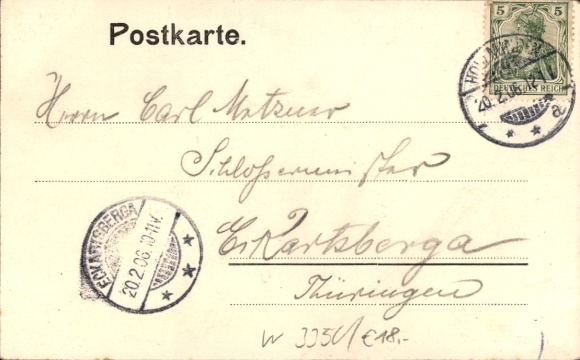 Postkarte.
5 5
DEUTSCHES REICH
20.2.06.
* * a
Herrn Carl Metzner
Schlossermeister
Eckartsberga
Thüringen
ECKARTSBERGA
20.2.06.10-11V.
* * *
€18.-